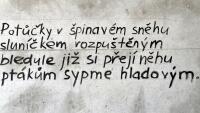 Potůčky v špinavém sněhu
sluníčkem rozpuštěným
bledule již si přejí něhu
ptákům sypme hladovým.